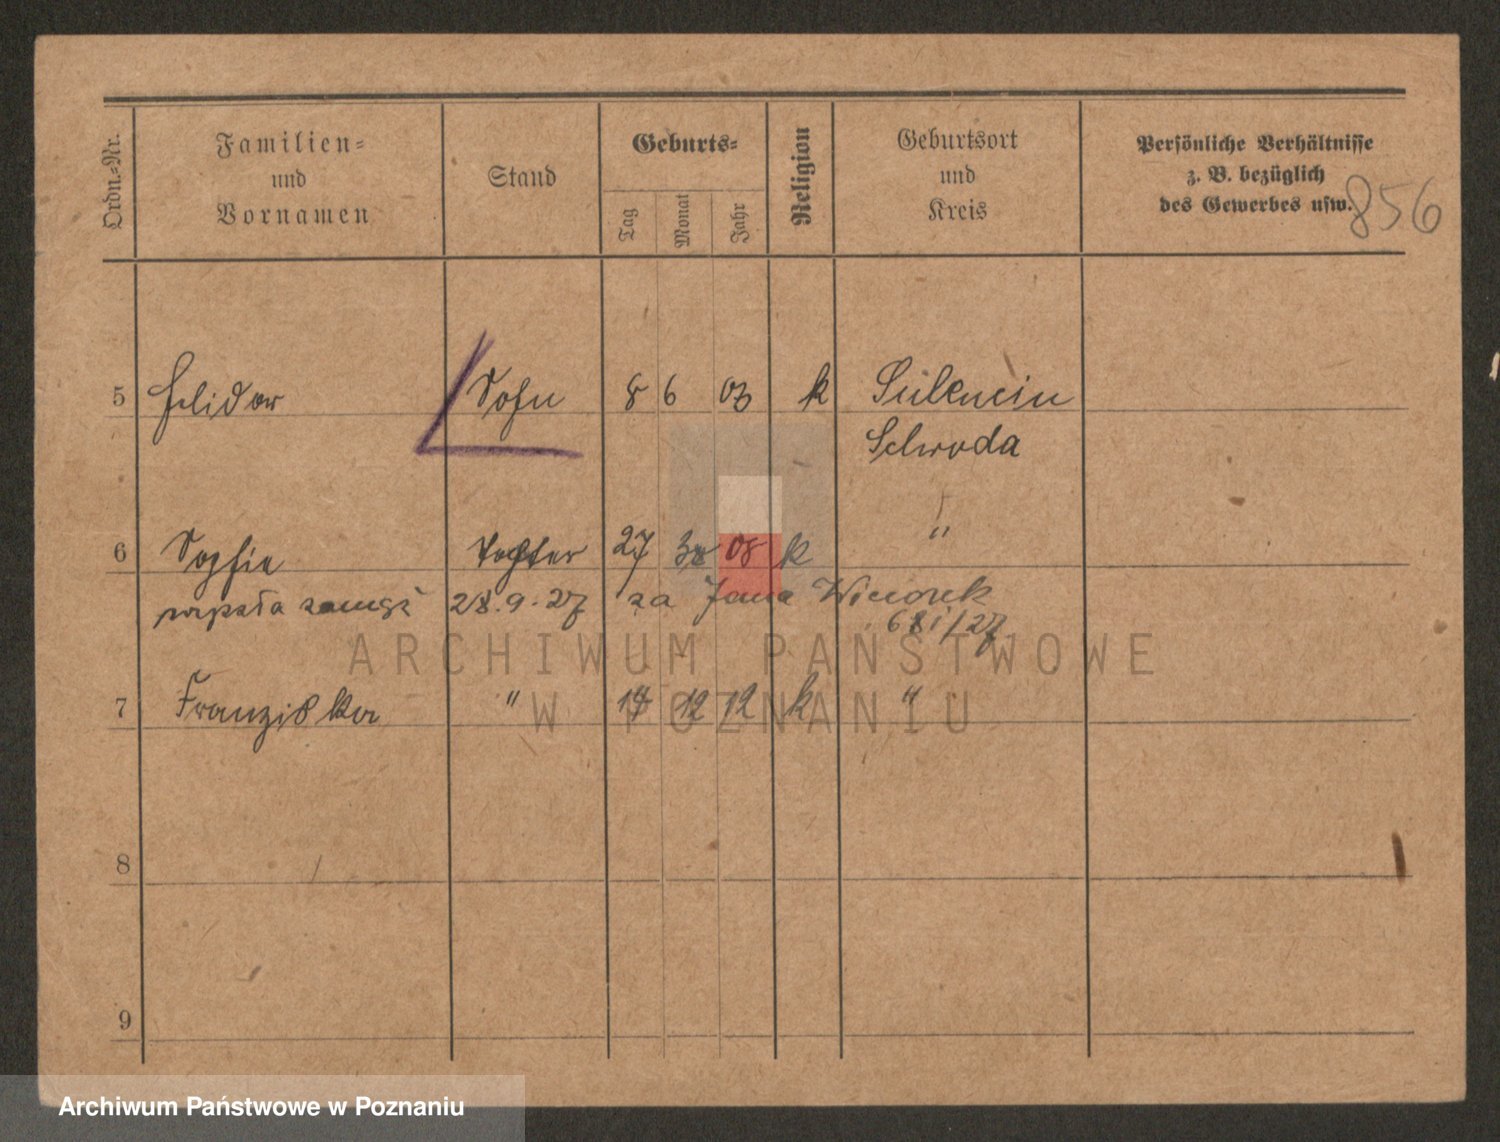 Ordn.-Nr.
Familien- und Vornamen
Stand
Geburts-
Tag
Monat
Jahr
Religion
Geburtsort und Kreis
Persönliche Verhältnisse
z. B. bezüglich
des Gewerbes usw.
856
5 Helidor Sohn 8 6 03 k Sulencin
Schroda
6 Sophie Tochter 27 3 08 k "
28.9.27 za Jana
681/27
7 Franziska " 12 12 k "
8
9
ARCHIWUM PAŃSTWOWE
W POZNANIU
Archiwum Państwowe w Poznaniu